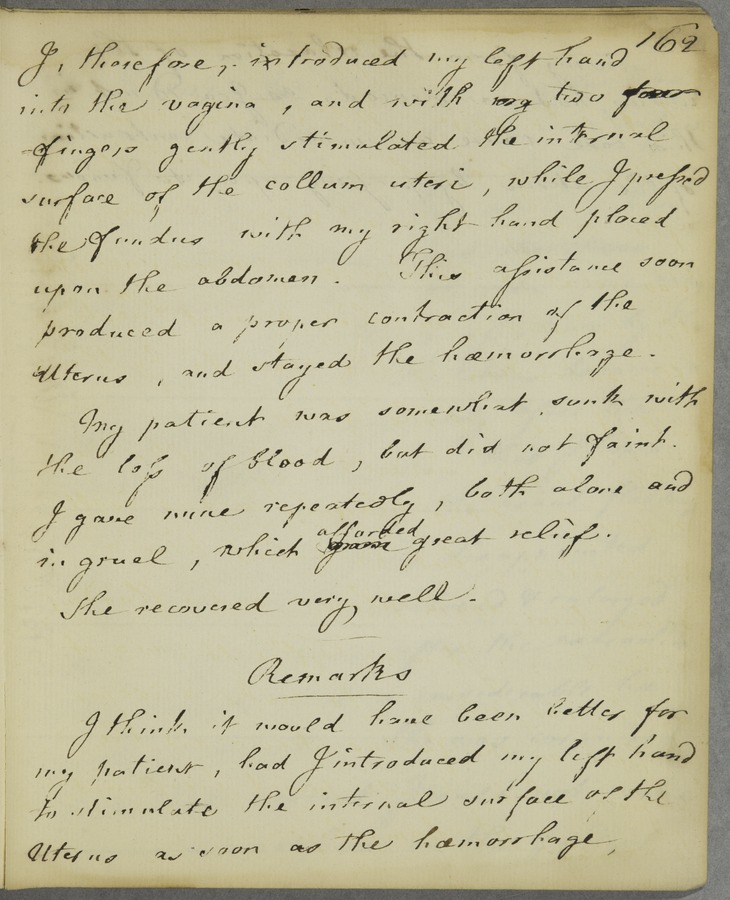 162
I, therefore, introduced my left hand
into the vagina, and with my two four
fingers gently stimulated the internal
surface of the collum uteri, while I press'd
the fundus with my right hand placed
upon the abdomen. This assistance soon
produced a proper contraction of the
Uterus, and stayed the hæmorrhage.
My patient was somewhat sunk with
the loss of blood, but did not faint.
I gave wine repeatedly, both alone and
in gruel, which afforded great relief.
She recovered very well.
Remarks
I think it would have been better for
my patient, had I introduced my left hand
to stimulate the internal surface of the
Uterus as soon as the hæmorrhage,